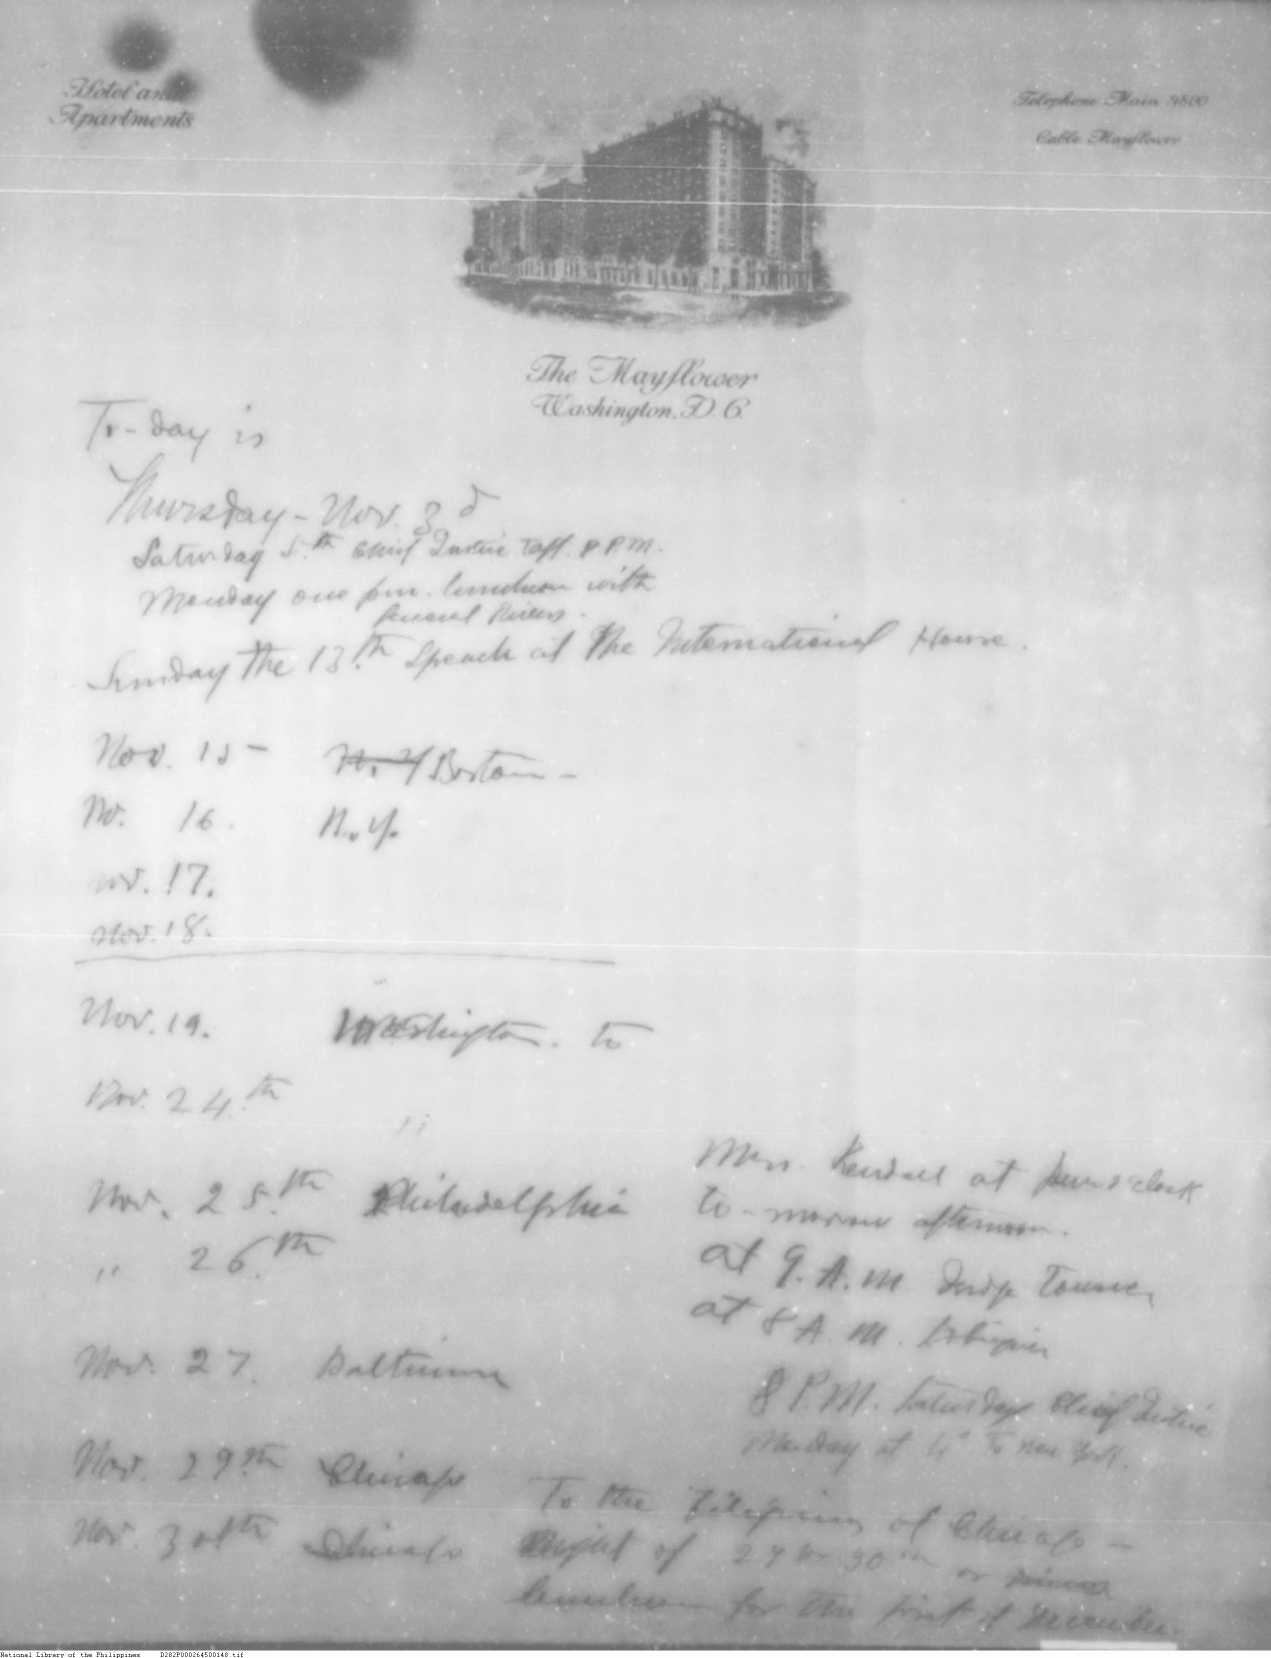 Hotel and
Apartments
Telephone Main 9800
Cable Mayflower
The Mayflower
Washington, D.C.
To-day is
Thursday - Nov. 3d
Saturday 5.th Chief Justice Taft. 8 P.M.
Monday one p.m. luncheon with
General
Sunday the 13.th Speech at the International House.
Nov. 15 - N.Y Boston -
Nov. 16. N.Y.
Nov. 17.
Nov. 18.
Nov. 19. Washington. to
Nov. 24.th "
Nov. 25.th Philadelphia
" 26.th
Nov. 27. Baltimore
Nov. 29.th Chicago
Nov. 30th Chicago
Mrs. Kendall at o'clock
to-morrow afternoon.
at 9. A.M Judge
at 8 A.M.
8 P.M. Saturday Chief Justice
Monday at to New York.
To the Filipinos of Chicago -
Night of 29 or 30th or
luncheon for the first of December.
National Library of the Philippines D282P000264500148.tif